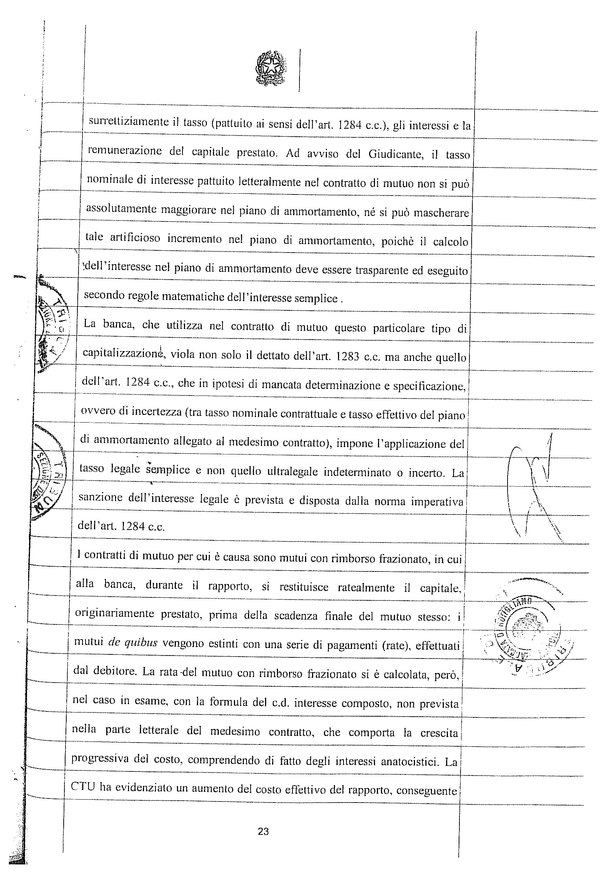 surrettiziamente il tasso (pattuito ai sensi dell'art. 1284 c.c.), gli interessi e la
remunerazione del capitale prestato. Ad avviso del Giudicante, il tasso
nominale di interesse pattuito letteralmente nel contratto di mutuo non si può
assolutamente maggiorare nel piano di ammortamento, né si può mascherare
tale artificioso incremento nel piano di ammortamento, poiché il calcolo
dell'interesse nel piano di ammortamento deve essere trasparente ed eseguito
secondo regole matematiche dell'interesse semplice .
La banca, che utilizza nel contratto di mutuo questo particolare tipo di
capitalizzazione, viola non solo il dettato dell'art. 1283 c.c. ma anche quello
dell'art. 1284 c.c., che in ipotesi di mancata determinazione e specificazione,
ovvero di incertezza (tra tasso nominale contrattuale e tasso effettivo del piano
di ammortamento allegato al medesimo contratto), impone l'applicazione del
tasso legale semplice e non quello ultralegale indeterminato o incerto. La
sanzione dell'interesse legale è prevista e disposta dalla norma imperativa
dell'art. 1284 c.c.
I contratti di mutuo per cui è causa sono mutui con rimborso frazionato, in cui
alla banca, durante il rapporto, si restituisce ratealmente il capitale,
originariamente prestato, prima della scadenza finale del mutuo stesso: i
mutui de quibus vengono estinti con una serie di pagamenti (rate), effettuati
dal debitore. La rata del mutuo con rimborso frazionato si è calcolata, però,
nel caso in esame, con la formula del c.d. interesse composto, non prevista
nella parte letterale del medesimo contratto, che comporta la crescita
progressiva del costo, comprendendo di fatto degli interessi anatocistici. La
CTU ha evidenziato un aumento del costo effettivo del rapporto, conseguente
23